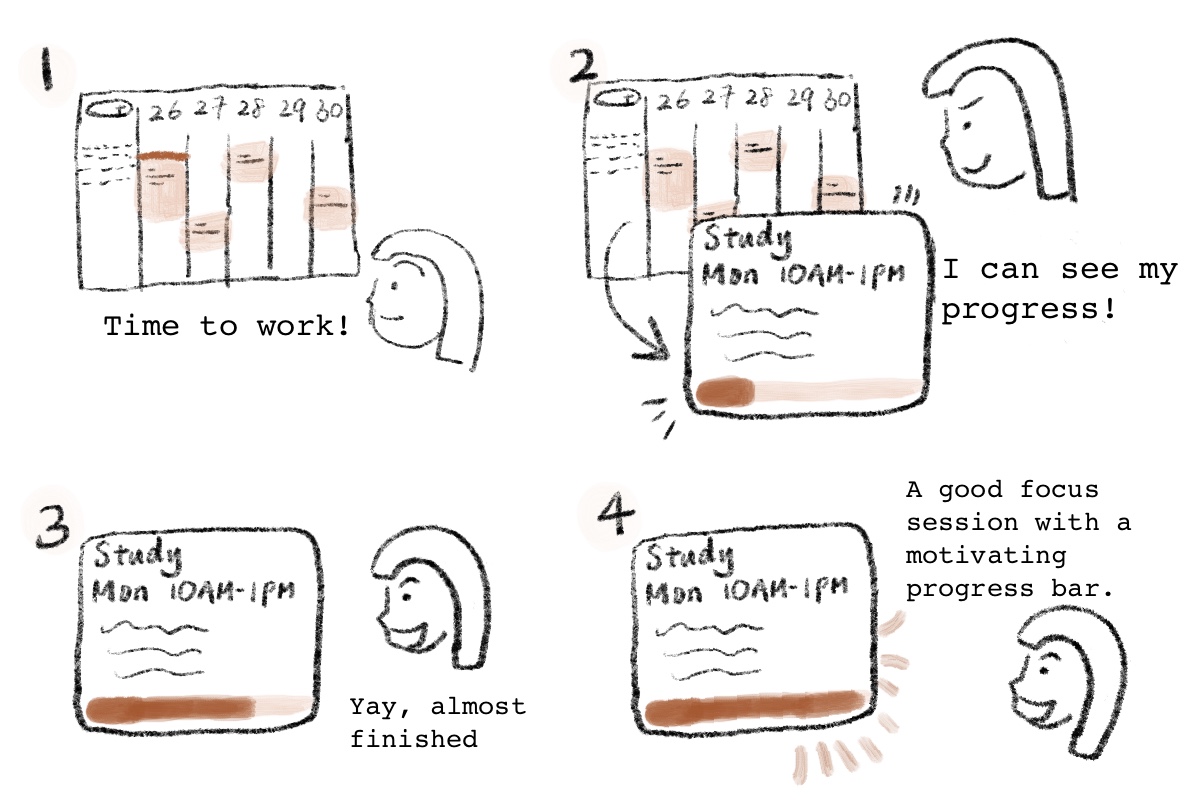 1
26 27 28 29 30
Time to work!
2
26 27 28 29 30
Study
Mon 10AM-1PM
I can see my
progress!
3
Study
Mon 10AM-1PM
Yay, almost
finished
4
Study
Mon 10AM-1PM
A good focus
session with a
motivating
progress bar.